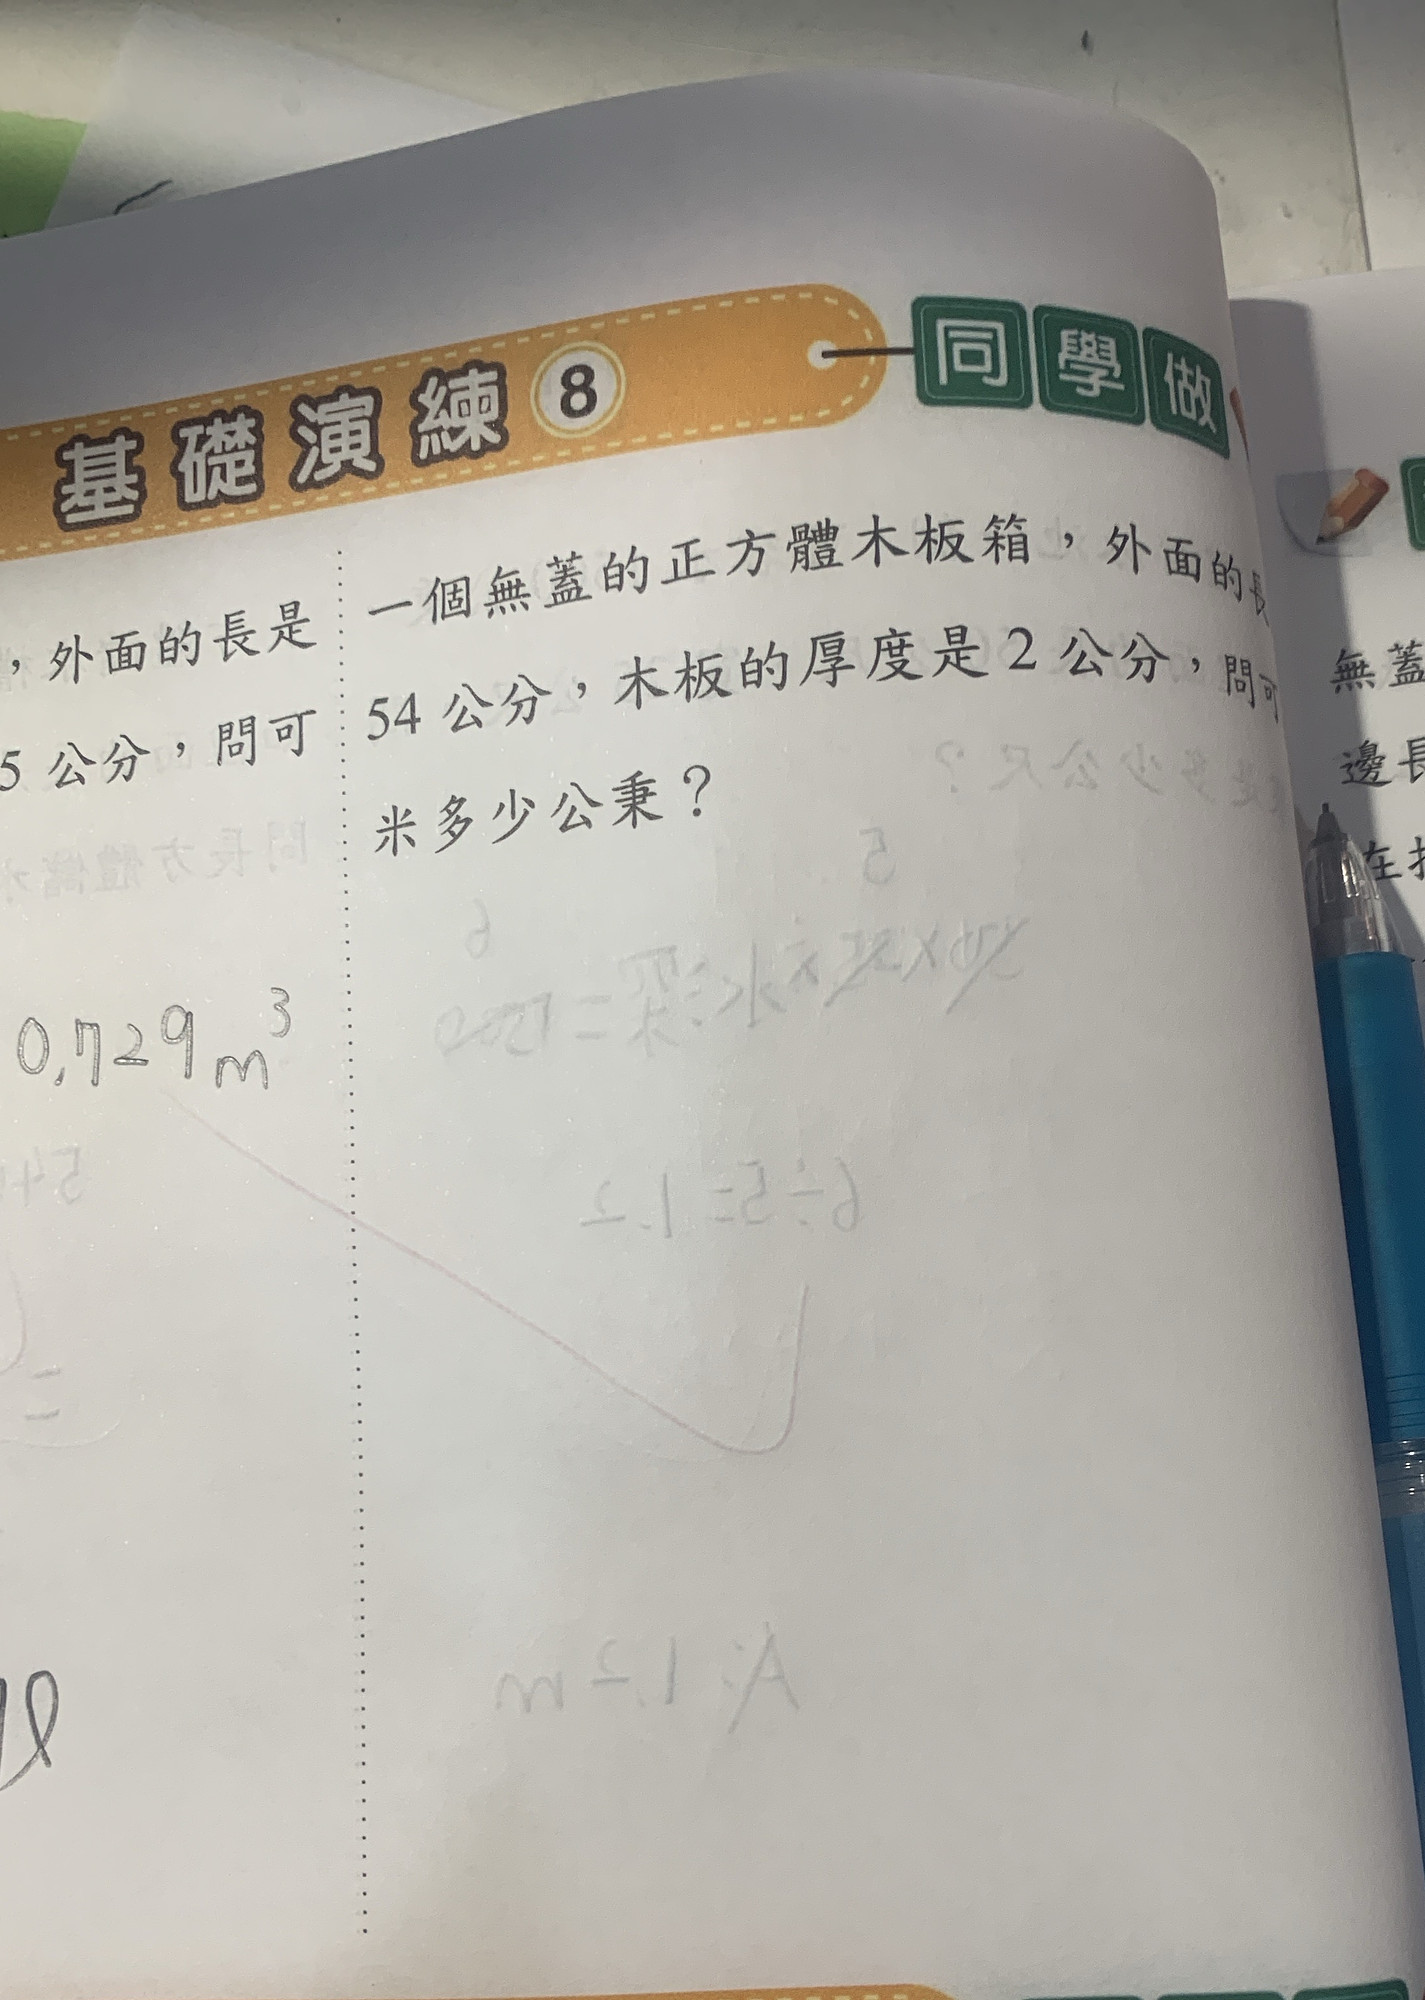 基礎演練8
同學做
，外面的長是
5 公分，問可
0.729 m³
一個無蓋的正方體木板箱，外面的長
54 公分，木板的厚度是 2 公分，問可
米多少公秉？
無蓋
邊長
在